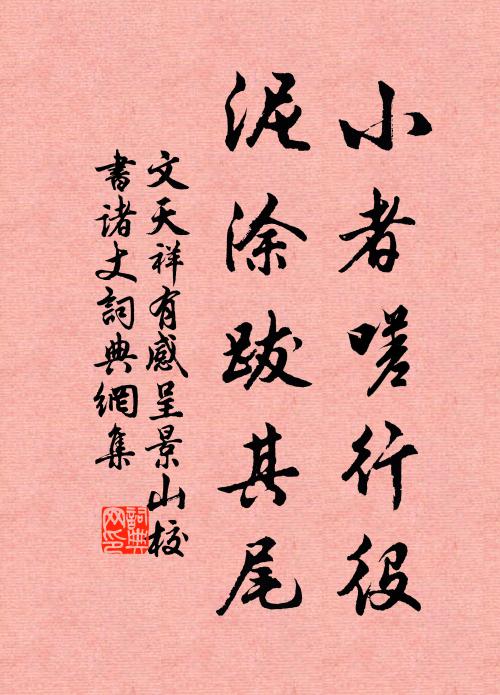 小者嗟行役
泥涂跋其尾
文天祥有感呈景山校
書诸丈詞典網集
詞典网印